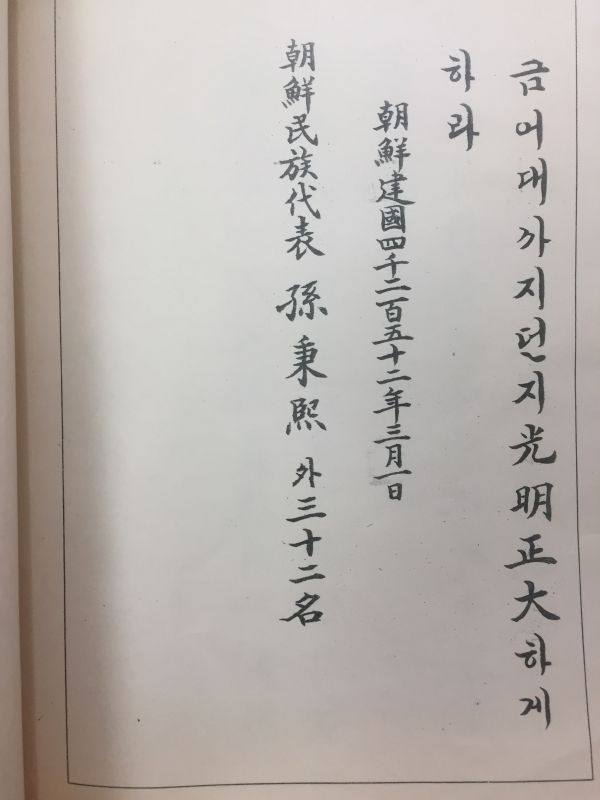 금어대까지던지光明正大하게
하라
朝鮮建國四千二百五十二年三月一日
朝鮮民族代表 孫秉熙 外三十二名